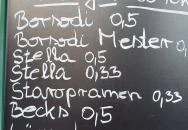 Borsodi 0,5
Borsodi Mester 0,
Stella 0,5
Stella 0,33
Staropramen 0,33
Becks 0,5